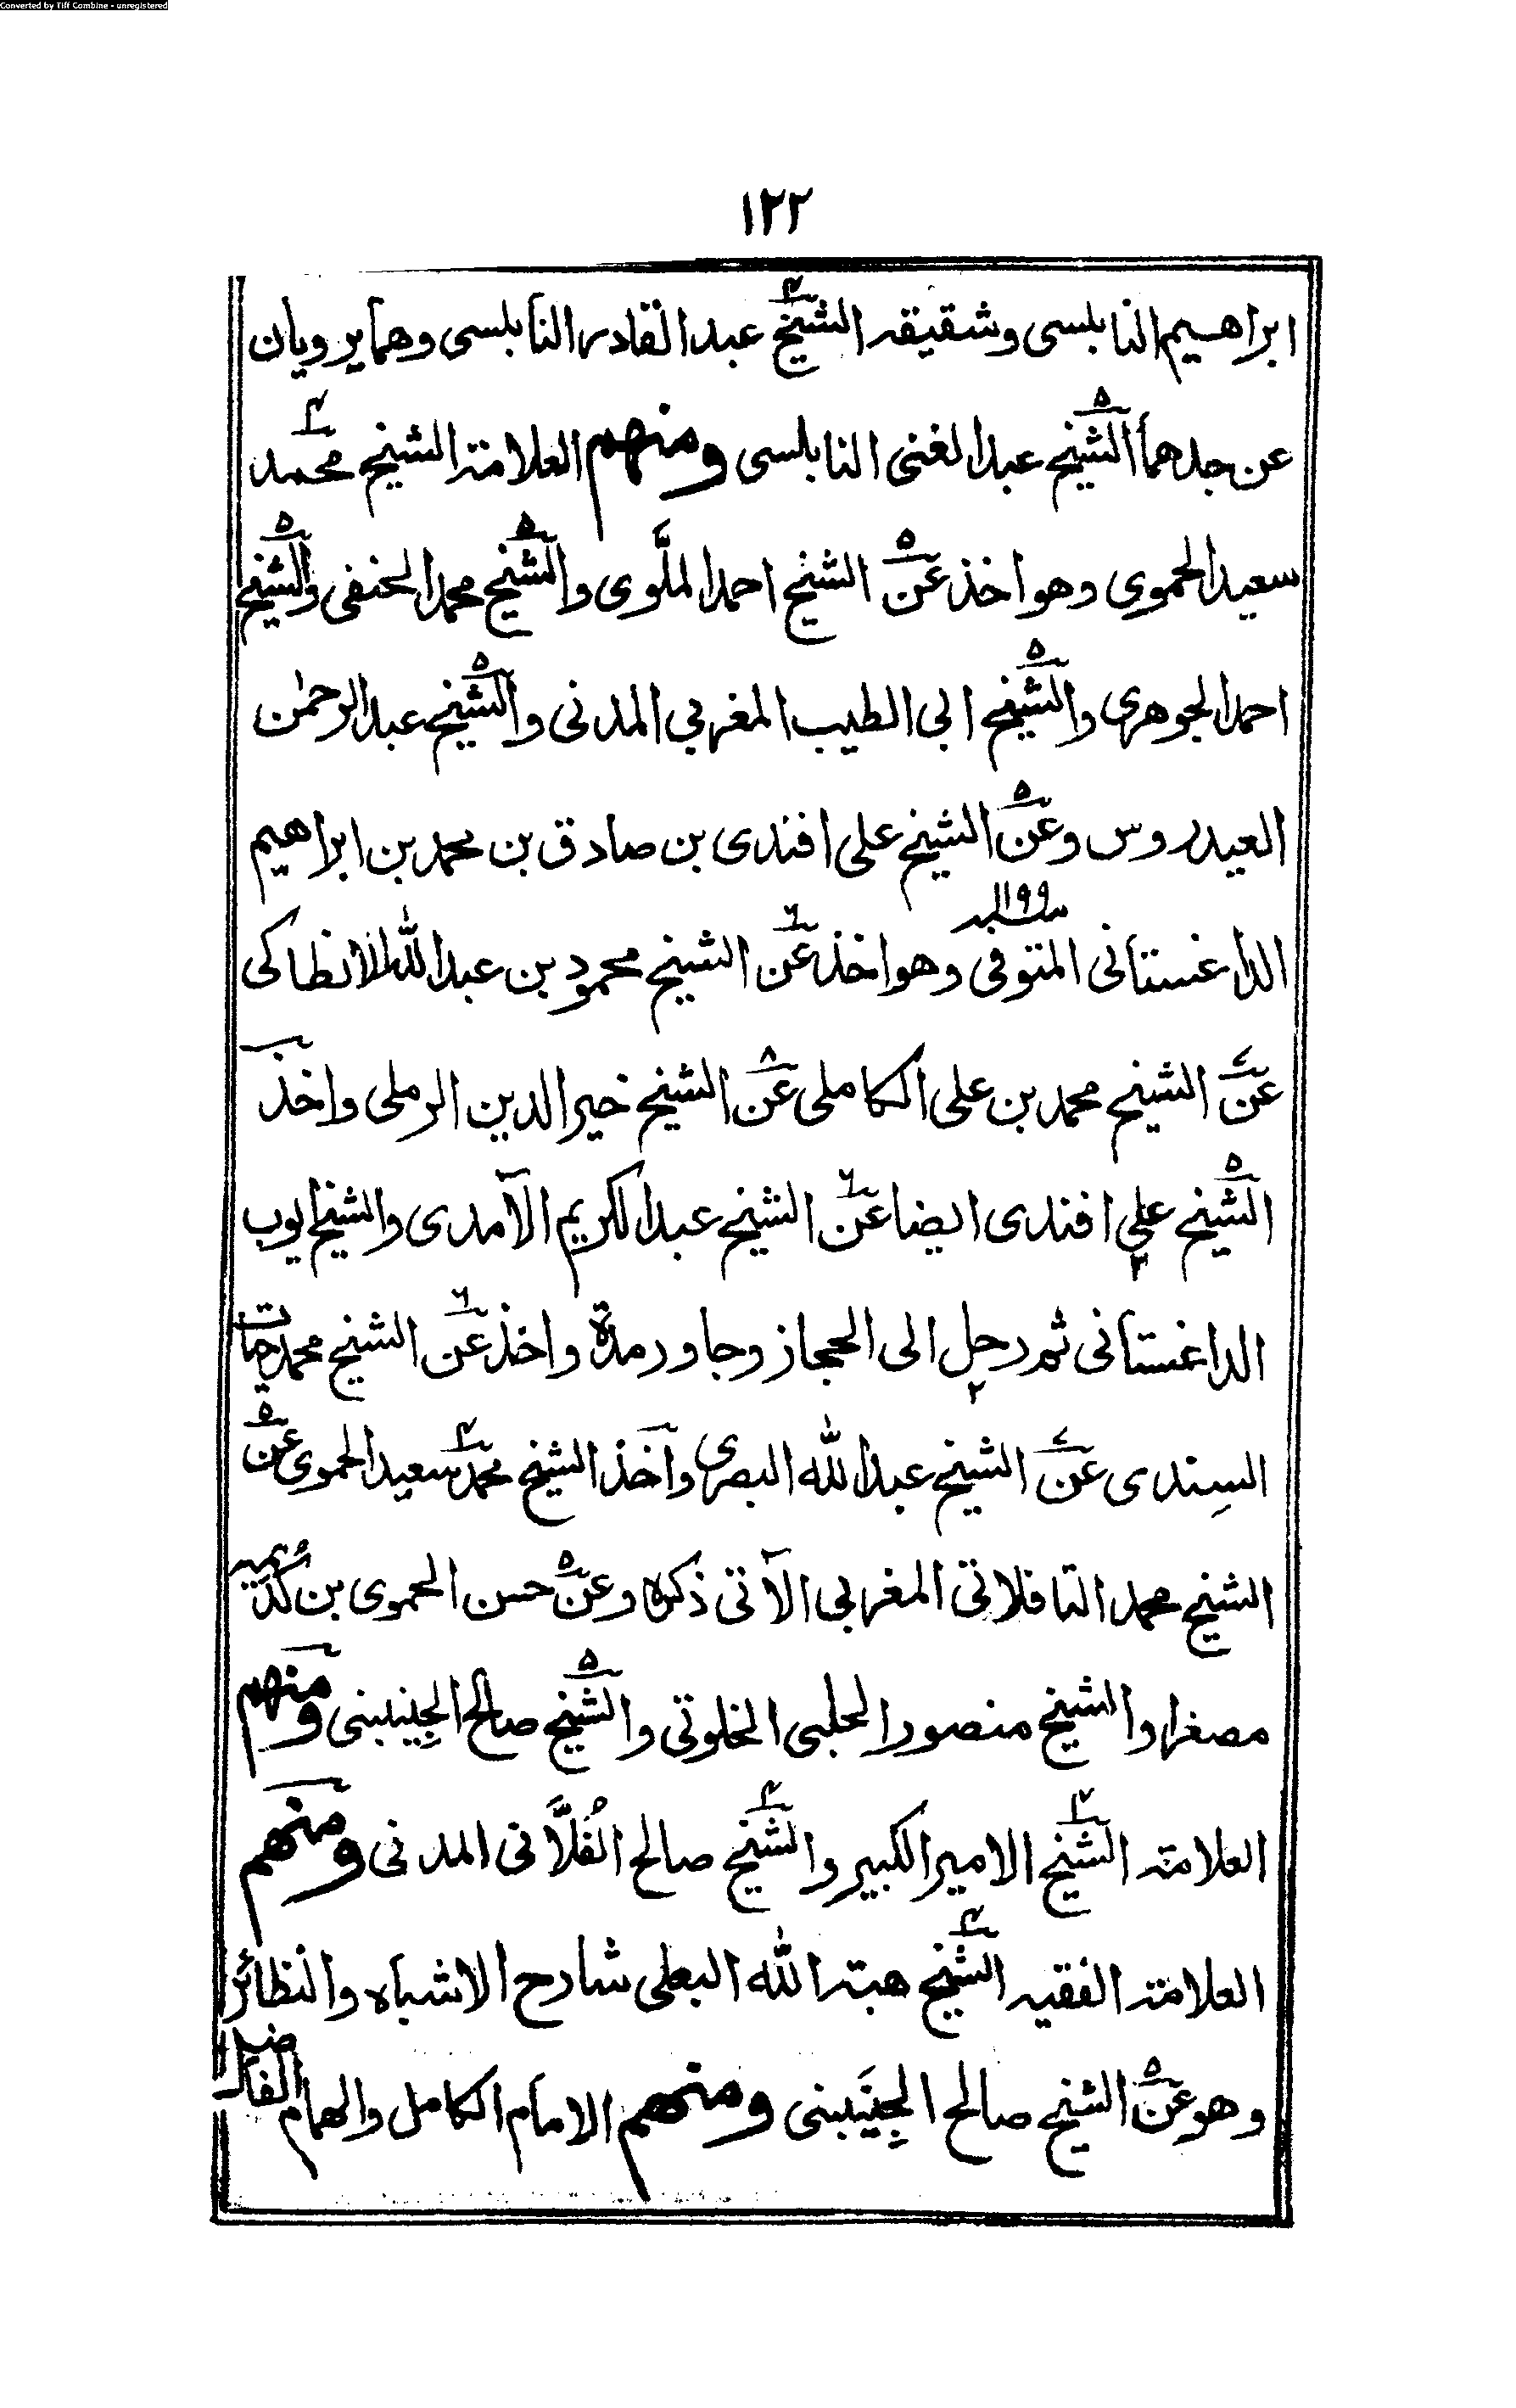 Converted by Tiff Combine - unregistered
١٢٢
ابراهيم النابلسى وشقيقه الشيخ عبد القادر النابلسى وهما يرويان
عن جدهما الشيخ عبد الغنى النابلسى ومنهم العلامة الشيخ محمد
سعيد الحموى وهو اخذ عن الشيخ احمد الملَّوى والشيخ محمد الحنفى والشيخ
احمد الجوهرى والشيخ ابى الطيب المغربي المدنى والشيخ عبد الرحمٰن
العيدروس وعن الشيخ على افندى بن صادق بن محمد بن ابراهيم
الداغستانى المتوفى سنة ١١٩٩ وهو اخذ عن الشيخ محمود بن عبد الله الانطاكى
عن الشيخ محمد بن على الكاملى عن الشيخ خير الدين الرملى واخذ
الشيخ علي افندى ايضا عن الشيخ عبد الكريم الآمدى والشيخ ايوب
الداغستانى ثم رحل الى الحجاز وجاور مدة واخذ عن الشيخ محمد حيات
السِندى عن الشيخ عبد الله البصرى وآخذ الشيخ محمد سعيد الحموى عن
الشيخ محمد التافلاتى المغربي الآتى ذكره وعن حسن الحموى بن كُدَيمير
مصغرا والشيخ منصور الحلبى الخلوتى والشيخ صالح الجِنِينى ومنهم
العلامة الشيخ الامير الكبير والشيخ صالح الفُلَّانى المدنى ومنهم
العلامة الفقيه الشيخ هبة الله البعلى شارح الاشباه والنظائر
وهو عن الشيخ صالح الجِنَينى ومنهم الامام الكامل والهمام الفاضل